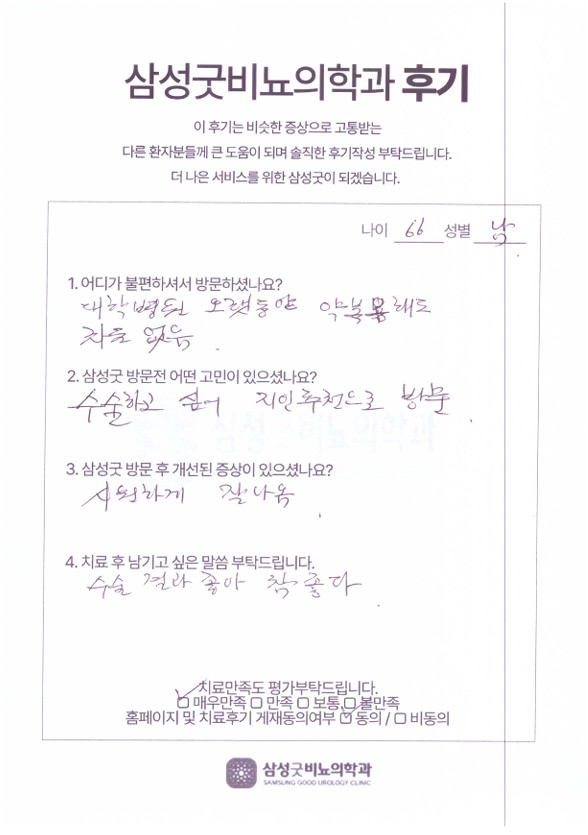 삼성굿비뇨의학과 후기
이 후기는 비슷한 증상으로 고통받는
다른 환자분들께 큰 도움이 되며 솔직한 후기작성 부탁드립니다.
더 나은 서비스를 위한 삼성굿이 되겠습니다.
나이 66 성별 남
1. 어디가 불편하셔서 방문하셨나요?
대학병원 오랫동안 약복용해도
차도 없음
2. 삼성굿 방문전 어떤 고민이 있으셨나요?
수술하고 싶어 지인추천으로 방문
3. 삼성굿 방문 후 개선된 증상이 있으셨나요?
시원하게 잘나옴
4. 치료 후 남기고 싶은 말씀 부탁드립니다.
수술 결과 좋아 참 좋다
치료만족도 평가부탁드립니다.
매우만족 만족 보통 불만족
홈페이지 및 치료후기 게재동의여부 동의 / 비동의
삼성굿비뇨의학과
SAMSUNG GOOD UROLOGY CLINIC